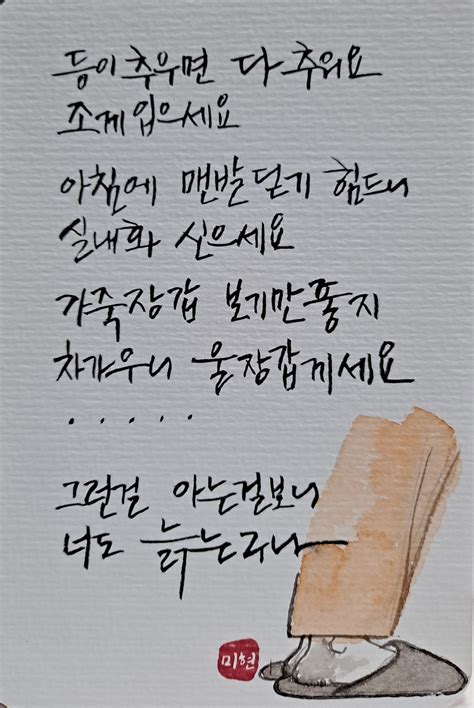 등이 추우면 다 추워요
조끼 입으세요
아침에 맨발 딛기 힘드니
실내화 신으세요
가죽장갑 보기만 좋지
차가우니 울장갑 끼세요
.....
그런걸 아는걸 보니
너도 늙는구나
미현